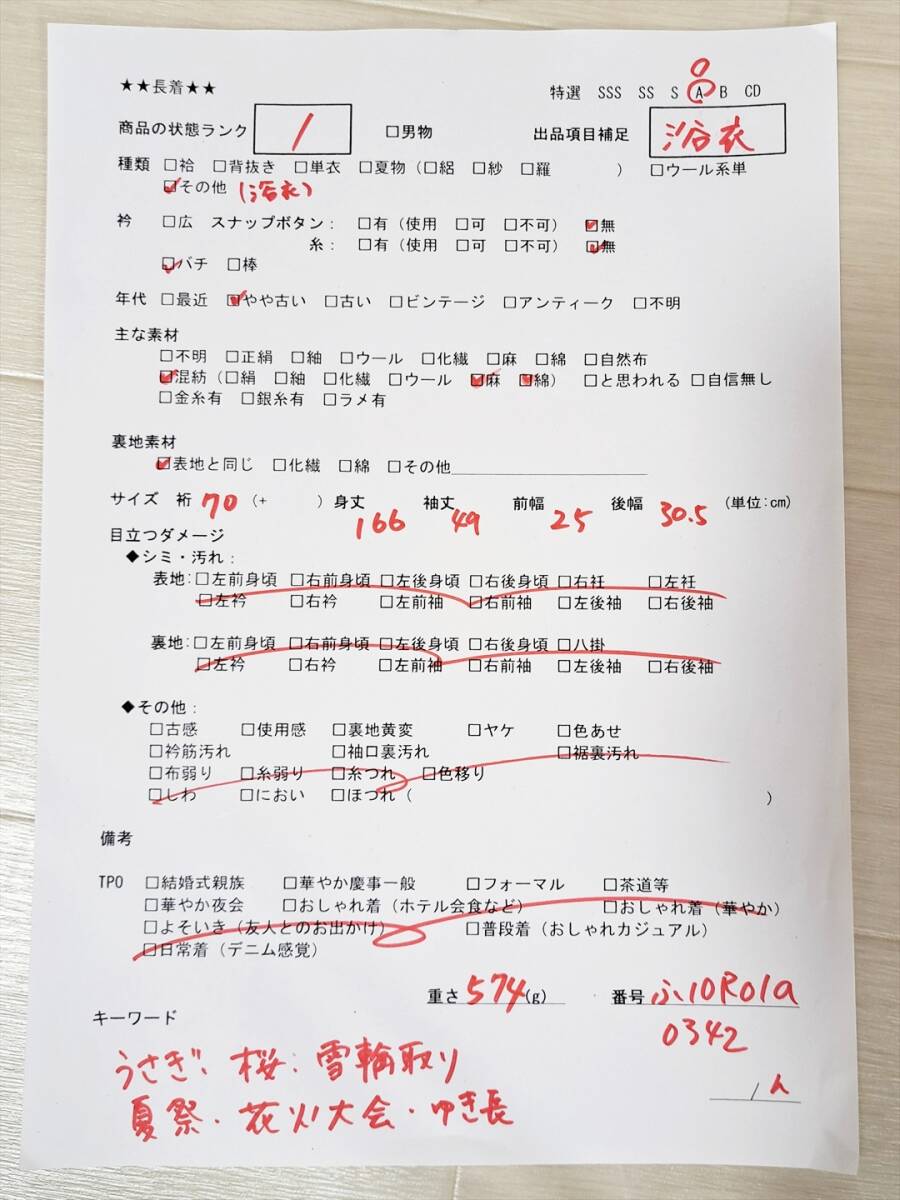 ★★長着★★
特選 SSS SS S A B CD
商品の状態ランク 1 □男物 出品項目補足 浴衣
種類 □袷 □背抜き □単衣 □夏物（□絽 □紗 □羅 ） □ウール系単
☑その他（浴衣）
衿 □広 スナップボタン：□有（使用 □可 □不可） ☑無
糸：□有（使用 □可 □不可） ☑無
☑バチ □棒
年代 □最近 ☑やや古い □古い □ビンテージ □アンティーク □不明
主な素材
□不明 □正絹 □紬 □ウール □化繊 □麻 □綿 □自然布
☑混紡（□絹 □紬 □化繊 □ウール ☑麻 ☑綿） □と思われる □自信無し
□金糸有 □銀糸有 □ラメ有
裏地素材
☑表地と同じ □化繊 □綿 □その他
サイズ 裄 70 （+ ）身丈 166 袖丈 49 前幅 25 後幅 30.5 （単位:cm）
目立つダメージ
◆シミ・汚れ：
表地：□左前身頃 □右前身頃 □左後身頃 □右後身頃 □右衽 □左衽
□左衿 □右衿 □左前袖 □右前袖 □左後袖 □右後袖
裏地：□左前身頃 □右前身頃 □左後身頃 □右後身頃 □八掛
□左衿 □右衿 □左前袖 □右前袖 □左後袖 □右後袖
◆その他：
□古感 □使用感 □裏地黄変 □ヤケ □色あせ
□衿筋汚れ □袖口裏汚れ □裾裏汚れ
□布弱り □糸弱り □糸つれ □色移り
□しわ □におい □ほつれ（ ）
備考
TPO □結婚式親族 □華やか慶事一般 □フォーマル □茶道等
□華やか夜会 □おしゃれ着（ホテル会食など） □おしゃれ着（華やか）
□よそいき（友人とのお出かけ） □普段着（おしゃれカジュアル）
□日常着（デニム感覚）
重さ 574（g） 番号 ふ10R01a
0342
キーワード
うさぎ・桜・雪輪取り
夏祭・花火大会・ゆき長